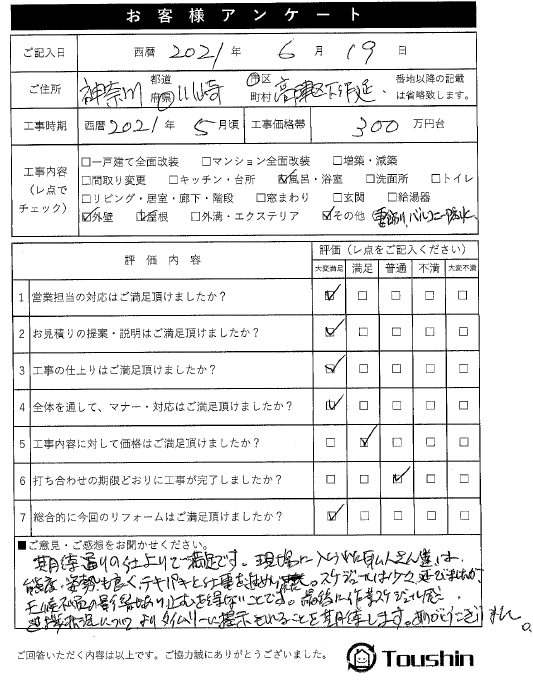 お客様アンケート
ご記入日 西暦 2021 年 6 月 19 日
ご住所 神奈川 都道府県 川崎 市区町村 高津区下作延 番地以降の記載は省略致します。
工事時期 西暦 2021 年 5 月頃 工事価格帯 300 万円台
工事内容（レ点でチェック）
□一戸建て全面改装 □マンション全面改装 □増築・減築
□間取り変更 □キッチン・台所 ☑風呂・浴室 □洗面所 □トイレ
□リビング・居室・廊下・階段 □窓まわり □玄関 □給湯器
☑外壁 ☑屋根 □外溝・エクステリア ☑その他（雨どい、バルコニー防水）
評価内容 評価（レ点をご記入ください）
大変満足 満足 普通 不満 大変不満
1 営業担当の対応はご満足頂けましたか？ ☑ □ □ □ □
2 お見積りの提案・説明はご満足頂けましたか？ ☑ □ □ □ □
3 工事の仕上りはご満足頂けましたか？ ☑ □ □ □ □
4 全体を通して、マナー・対応はご満足頂けましたか？ ☑ □ □ □ □
5 工事内容に対して価格はご満足頂けましたか？ □ ☑ □ □ □
6 打ち合わせの期限どおりに工事が完了しましたか？ □ □ ☑ □ □
7 総合的に今回のリフォームはご満足頂けましたか？ ☑ □ □ □ □
■ご意見・ご感想をお聞かせください。
期待通りの仕上りで満足です。現場に入られた職人さん達は、
態度・姿勢も良くテキパキと仕事を進め。スケジュールは少々延びましたが、
天候不良の影響もあり止むを得ないことです。最後に作業スケジュール
進捗状況について よりタイムリーに提示されることを期待します。ありがとうございました。
ご回答いただく内容は以上です。ご協力誠にありがとうございました。 Toushin